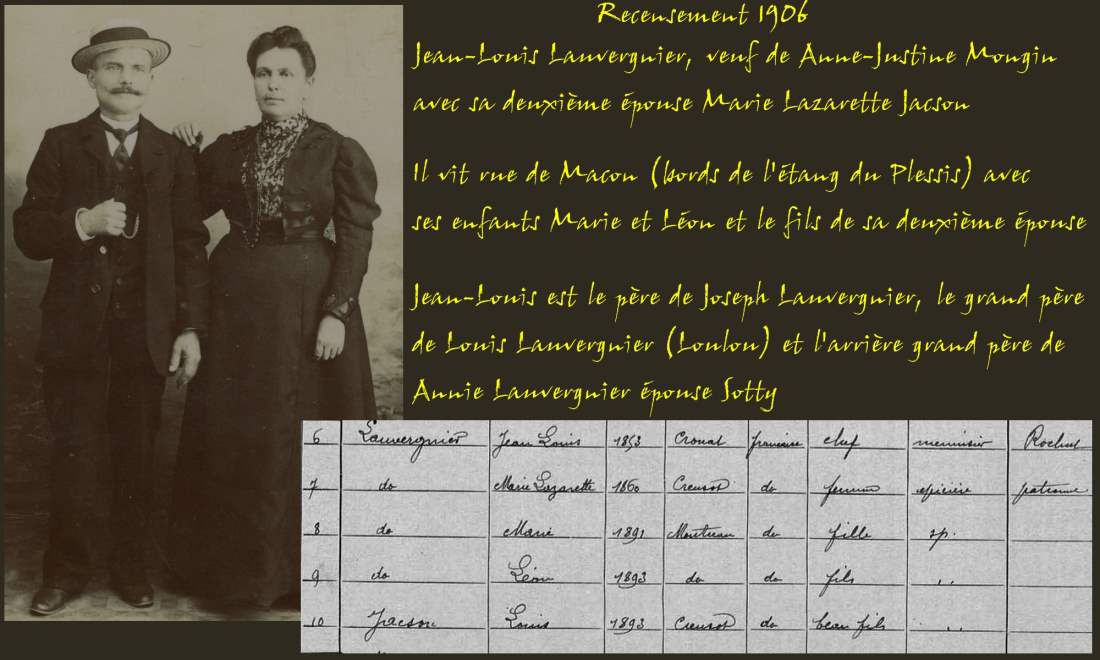 Recensement 1906
Jean-Louis Lauvergnier, veuf de Anne-Justine Mongin
avec sa deuxième épouse Marie Lazarette Jacson
Il vit rue de Macon (bords de l'étang du Plessis) avec
ses enfants Marie et Léon et le fils de sa deuxième épouse
Jean-Louis est le père de Joseph Lauvergnier, le grand père
de Louis Lauvergnier (Loulou) et l'arrière grand père de
Annie Lauvergnier épouse Sotty
6 Lauvergnier Jean Louis 1853 française chef menuisier
7 do Marie Lazarette 1860 Creusot do femme épicière patronne
8 do Marie 1891 Montceau do fille sp.
9 do Léon 1893 do do fils
10 Jacson Louis 1893 Creusot do beau fils